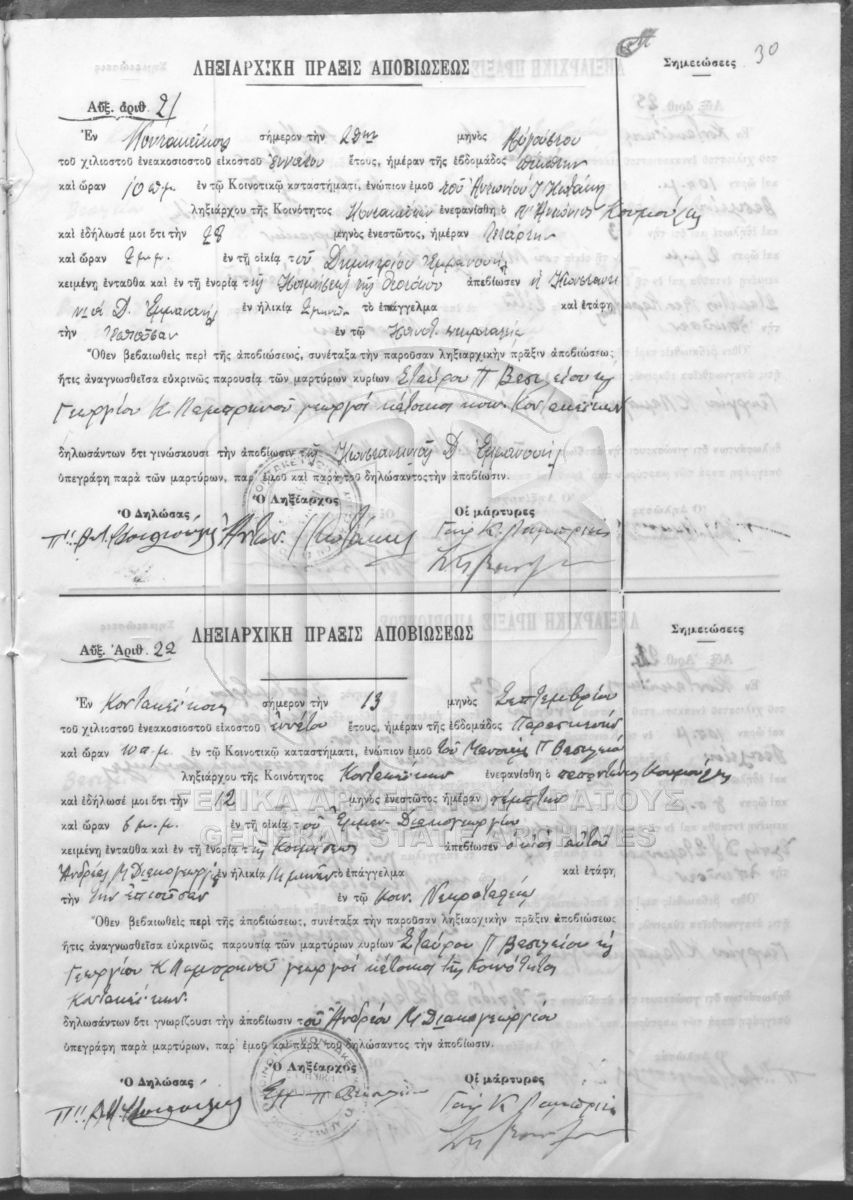 30
ΛΗΞΙΑΡΧΙΚΗ ΠΡΑΞΙΣ ΑΠΟΒΙΩΣΕΩΣ
Σημειώσεις
Αὔξ. ἀριθ. 21
Ἐν σήμερον τὴν 29ην μηνὸς Αὐγούστου
τοῦ χιλιοστοῦ ἐνεακοσιοστοῦ εἰκοστοῦ ἐννάτου ἔτους, ἡμέραν τῆς ἑβδομάδος πέμπτην
καὶ ὥραν 10 π.μ. ἐν τῷ Κοινοτικῷ καταστήματι, ἐνώπιον ἐμοῦ τοῦ Ἀντωνίου Ι Κωτάκη
ληξιάρχου τῆς Κοινότητος Κοντακεΐκων ἐνεφανίσθη ὁ Π Ἀντώνιος Κουμούλης
καὶ ἐδήλωσέ μοι ὅτι τὴν 28 μηνὸς ἐνεστῶτος, ἡμέραν Τετάρτην
καὶ ὥραν 2 μ.μ. ἐν τῇ οἰκίᾳ τοῦ Δημητρίου Ἐμμανουὴλ
κειμένῃ ἐνταῦθα καὶ ἐν τῇ ἐνορίᾳ τῆς Κοιμήσεως τῆς Θεοτόκου ἀπεβίωσεν ἡ Κωνσταντι
νιά Δ. Ἐμμανουὴλ ἐν ἡλικίᾳ τὸ ἐπάγγελμα καὶ ἐτάφη
τὴν ἐπιοῦσαν ἐν τῷ Κοινοτ. νεκροταφείῳ
Ὅθεν βεβαιωθεὶς περὶ τῆς ἀποβιώσεως, συνέταξα τὴν παροῦσαν ληξιαρχικὴν πρᾶξιν ἀποβιώσεως,
ἥτις ἀναγνωσθεῖσα εὐκρινῶς παρουσίᾳ τῶν μαρτύρων κυρίων Σταύρου Π Βασιλείου καὶ
Γεωργίου Κ. Λαμπρινοῦ γεωργοὶ κάτοικοι κοιν. Κοντακεΐκων
δηλωσάντων ὅτι γινώσκουσι τὴν ἀποβίωσιν τῆς Κωνσταντινιᾶς Δ. Ἐμμανουὴλ
ὑπεγράφη παρὰ τῶν μαρτύρων, παρ' ἐμοῦ καὶ παρὰ τοῦ δηλώσαντος τὴν ἀποβίωσιν.
Ὁ Δηλώσας
Ὁ Ληξίαρχος
Οἱ μάρτυρες
Ἀντων. Ι Κωτάκης
Γεώρ. Κ. Λαμπρινός
ΛΗΞΙΑΡΧΙΚΗ ΠΡΑΞΙΣ ΑΠΟΒΙΩΣΕΩΣ
Σημειώσεις
Αὔξ. Ἀριθ. 22
Ἐν Κοντακεΐκοις σήμερον τὴν 13 μηνὸς Σεπτεμβρίου
τοῦ χιλιοστοῦ ἐνεακοσιοστοῦ εἰκοστοῦ ἐννάτου ἔτους, ἡμέραν τῆς ἑβδομάδος Παρασκευὴν
καὶ ὥραν 10 π.μ. ἐν τῷ Κοινοτικῷ καταστήματι, ἐνώπιον ἐμοῦ τοῦ Μανουὴλ Π Βασιλείου
ληξιάρχου τῆς Κοινότητος Κοντακεΐκων ἐνεφανίσθη ὁ Κουμούλης
καὶ ἐδήλωσέ μοι ὅτι τὴν 12 μηνὸς ἐνεστῶτος ἡμέραν πέμπτην
καὶ ὥραν 6 μ.μ. ἐν τῇ οἰκίᾳ τοῦ Ἐμμαν. Διακογεωργίου
κειμένῃ ἐνταῦθα καὶ ἐν τῇ ἐνορίᾳ τῆς Κοιμήσεως ἀπεβίωσεν ὁ υἱὸς αὐτοῦ
Ἀνδρέας Μ Διακογεωργίου ἐν ἡλικίᾳ τὸ ἐπάγγελμα καὶ ἐτάφη
τὴν τὴν ἐπιοῦσαν ἐν τῷ Κοιν. Νεκροταφείῳ
Ὅθεν βεβαιωθεὶς περὶ τῆς ἀποβιώσεως, συνέταξα τὴν παροῦσαν ληξιαρχικὴν πρᾶξιν ἀποβιώσεως
ἥτις ἀναγνωσθεῖσα εὐκρινῶς παρουσίᾳ τῶν μαρτύρων κυρίων Σταύρου Π Βασιλείου καὶ
Γεωργίου Κ Λαμπρινοῦ γεωργοὶ κάτοικοι τῆς Κοινότητος
Κοντακεΐκων
δηλωσάντων ὅτι γνωρίζουσι τὴν ἀποβίωσιν τοῦ Ἀνδρέου Μ Διακογεωργίου
ὑπεγράφη παρὰ μαρτύρων, παρ' ἐμοῦ καὶ παρὰ τοῦ δηλώσαντος τὴν ἀποβίωσιν.
Ὁ Δηλώσας
Ὁ Ληξίαρχος
Οἱ μάρτυρες
Γεώρ. Κ. Λαμπρινός
ΓΕΝΙΚΑ ΑΡΧΕΙΑ ΤΟΥ ΚΡΑΤΟΥΣ
GENERAL STATE ARCHIVES